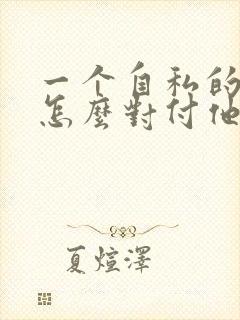 一个自私的
怎麼對付他
夏煊澤